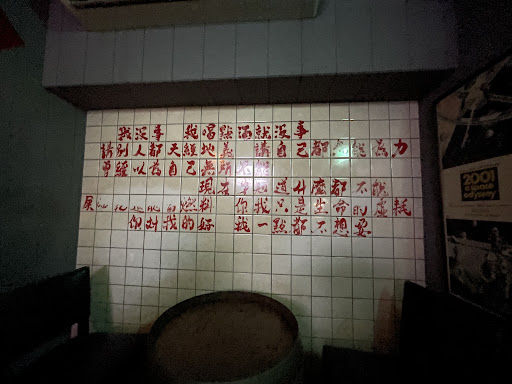 我沒事 我喝點酒就沒事
講別人都天經地義 講自己都無能為力
曾經以為自己無所
現在 知道什麼都不能
你我只是生命的虛耗
你對我的好 我一點都不想要
2001
a space
odyssey